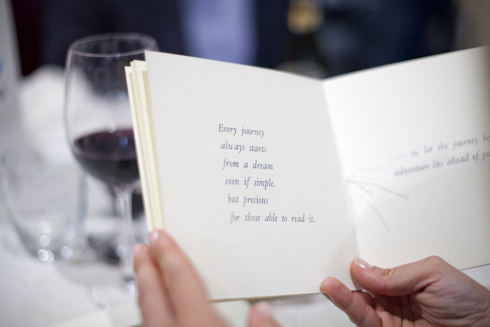 Every journey
always starts
from a dream
even if simple,
but precious
for those able to read it.
let the journey
adventure lies ahead of